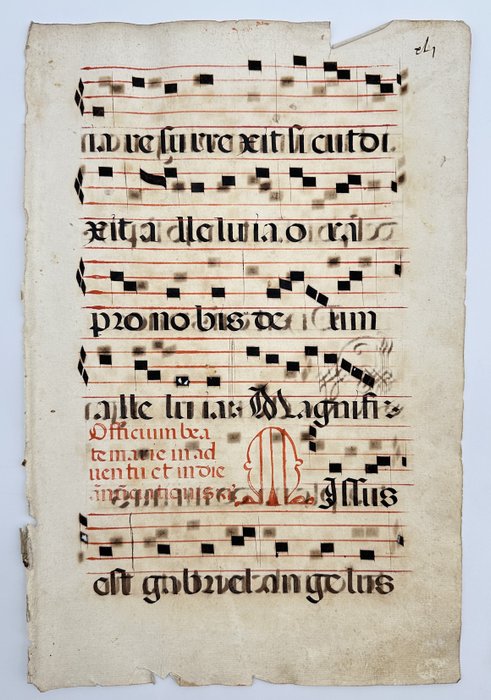 ia re surre xit si cut di
xit a lle lu ia. o ra
pro no bis de um
alle lu ia. Magnifi
Officium bea
te marie in ad
uentu et in die
Missus
est gabriel an gelus